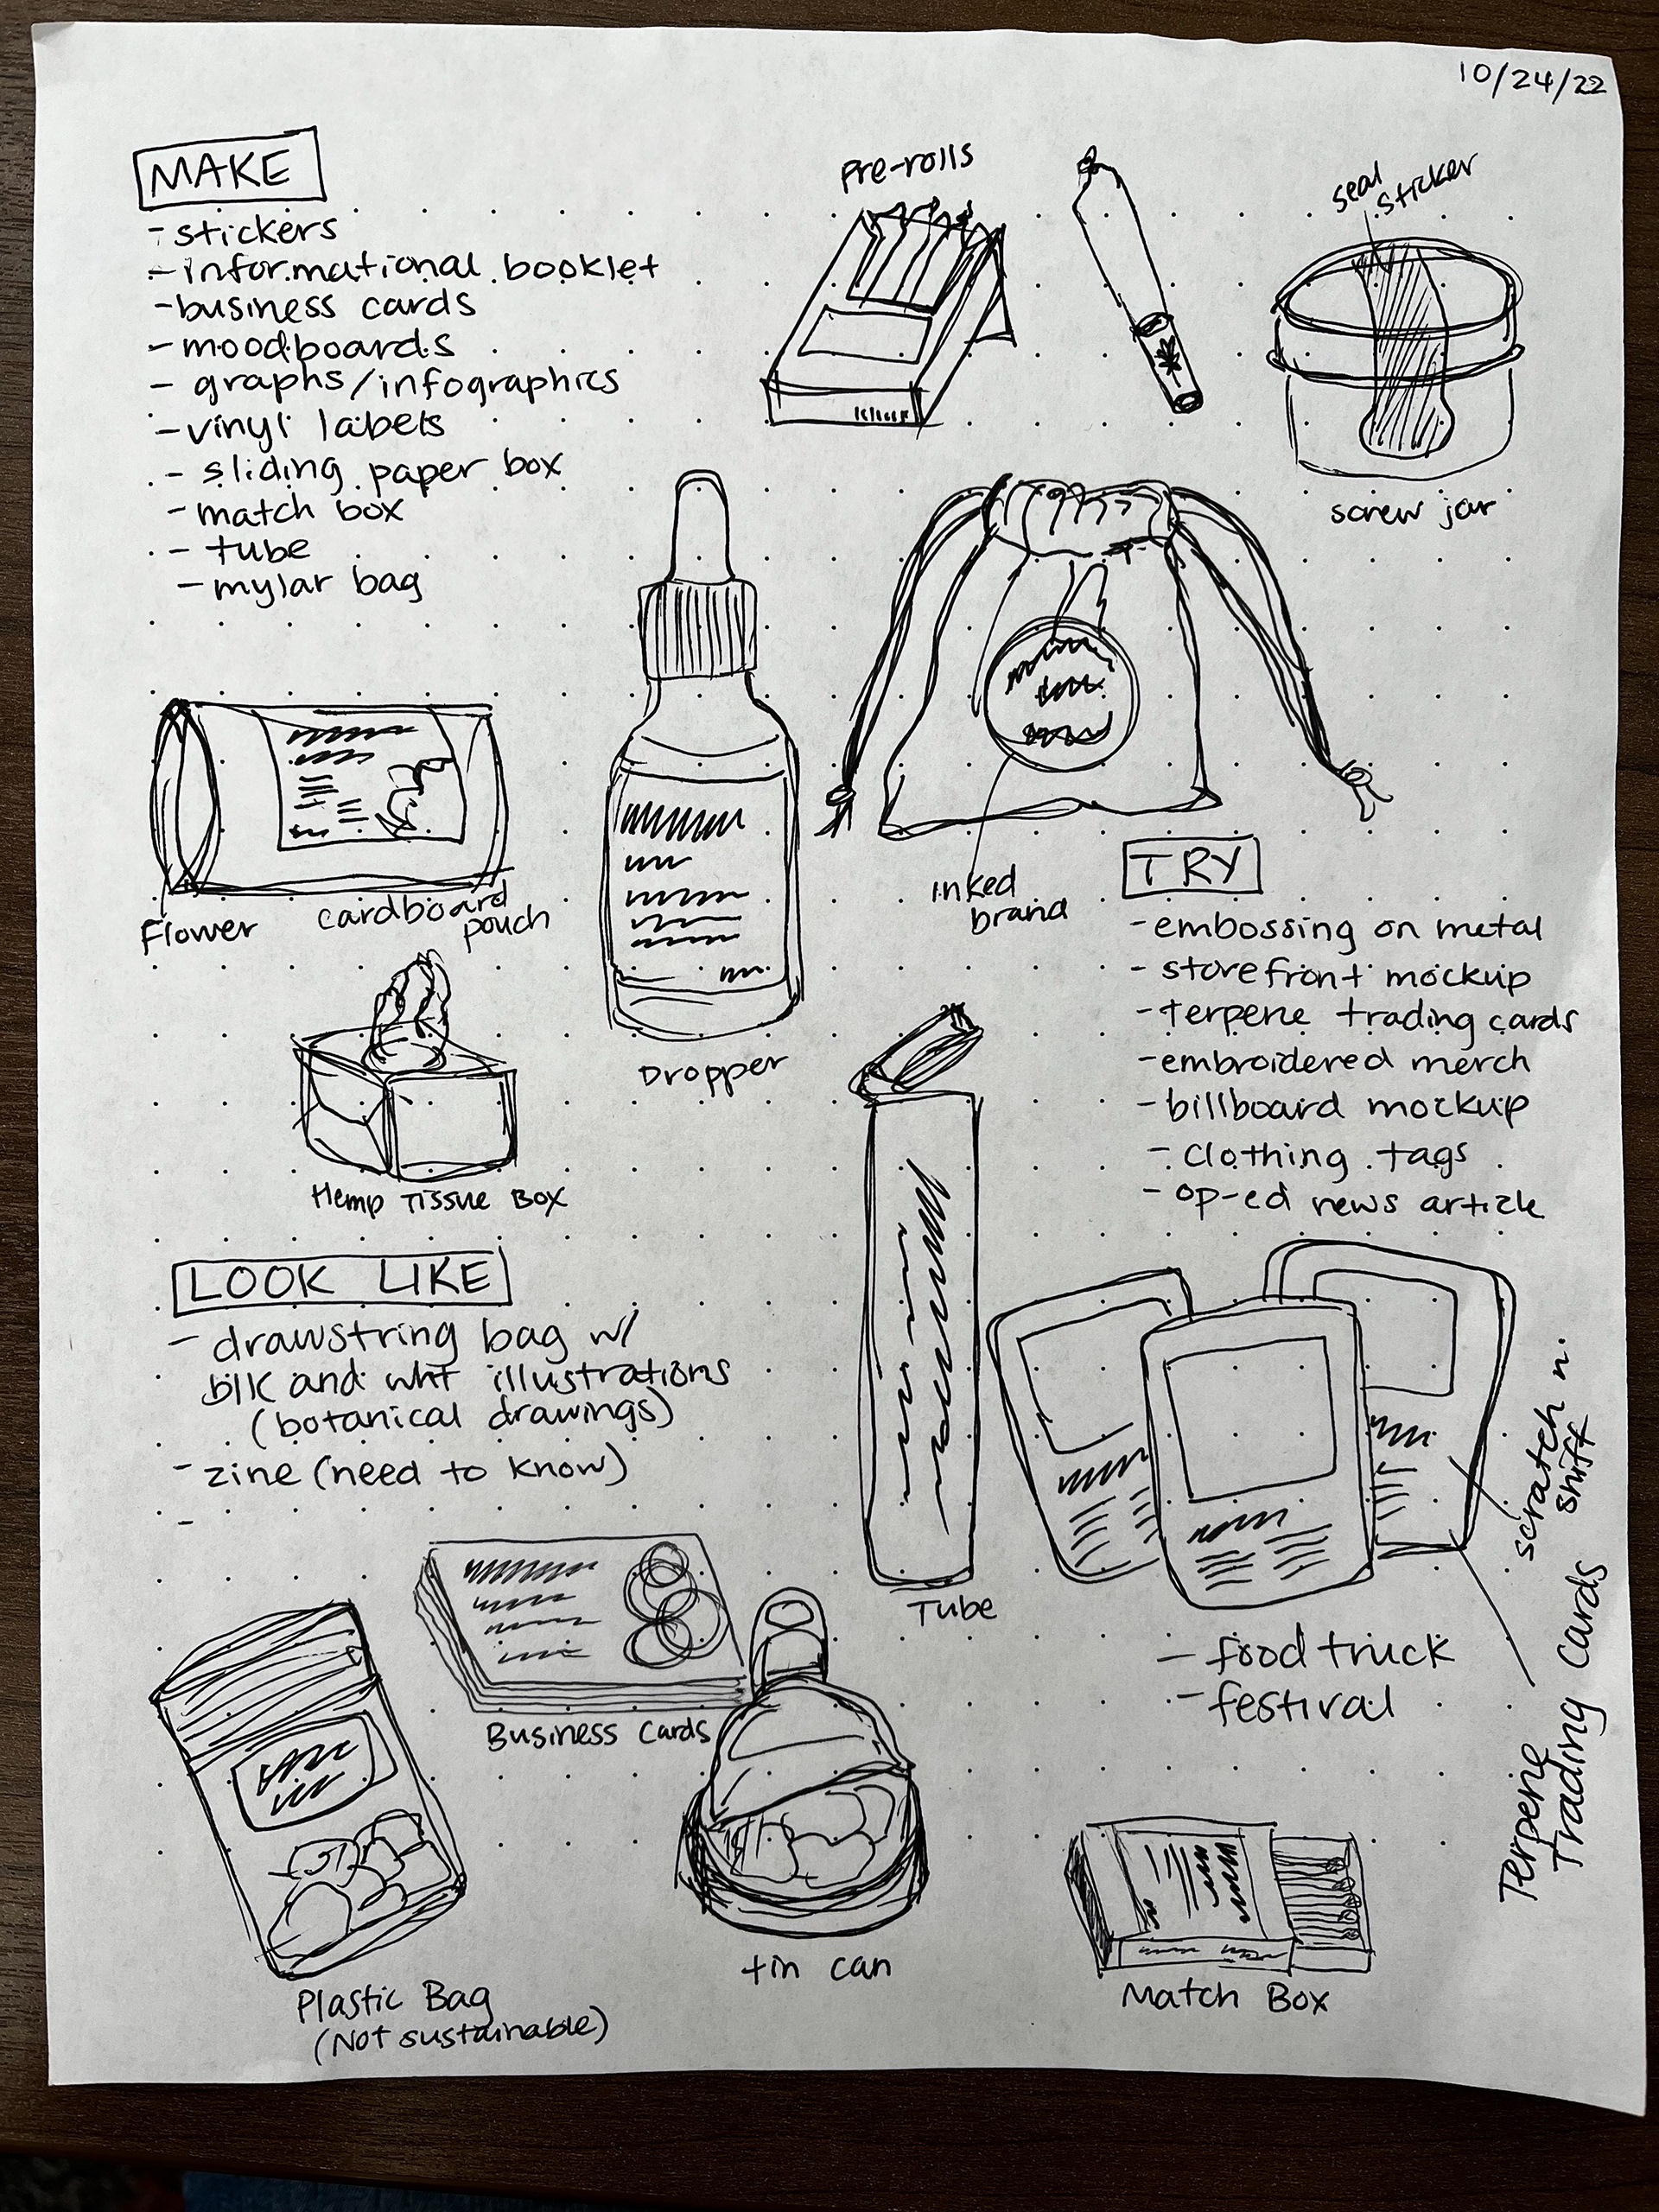 10/24/22
MAKE
- stickers
- informational booklet
- business cards
- moodboards
- graphs/infographics
- vinyl labels
- sliding paper box
- match box
- tube
- mylar bag
Pre-rolls
seal
sticker
screw jar
Flower
cardboard
pouch
Dropper
inked
brand
Hemp Tissue Box
TRY
- embossing on metal
- storefront mockup
- terpene trading cards
- embroidered merch
- billboard mockup
- clothing tags
- op-ed news article
LOOK LIKE
- drawstring bag w/
blk and wht illustrations
(botanical drawings)
- zine (need to know)
-
Tube
scratch n.
sniff
Terpene
Trading Cards
- food truck
- festival
Business Cards
Plastic Bag
(Not sustainable)
tin can
Match Box